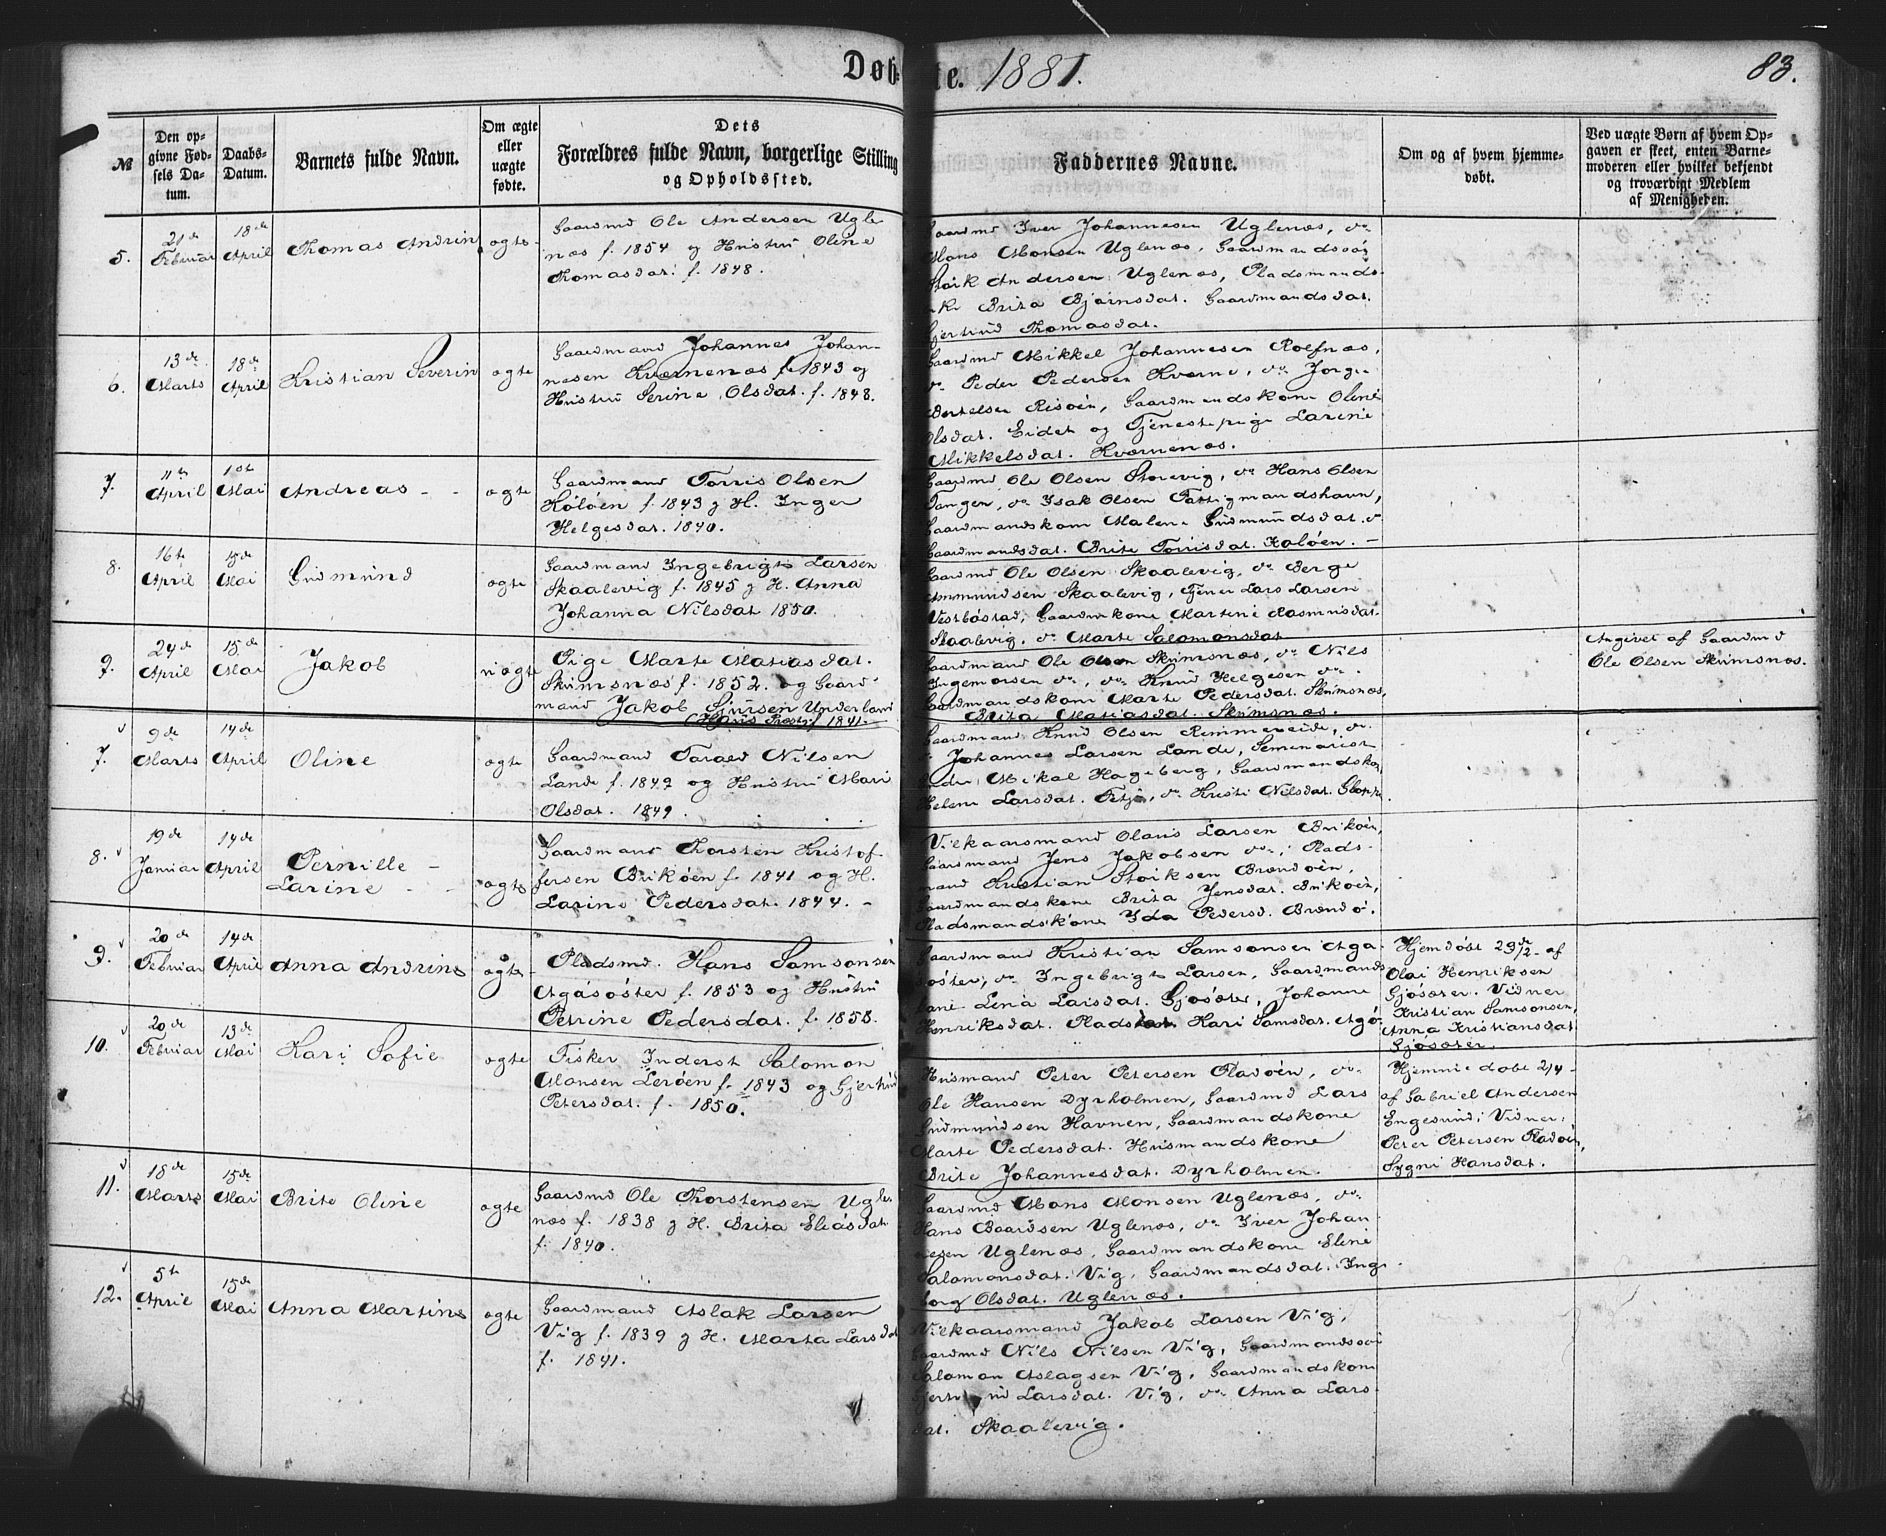 Døb-te. 1881. 83.
№
Den op-
givne Fød-
sels Da-
tum.
Daabs-
Datum.
Barnets fulde Navn.
Om ægte
eller
uægte
fødte.
Dets
Forældres fulde Navn, borgerlige Stilling
og Opholdssted.
Faddernes Navne.
Om og af hvem hjemme-
døbt.
Ved uægte Børn af hvem Op-
gaven er skeet, enten Barne-
moderen eller hvilket bekjendt
og troværdigt Medlem
af Menigheden.
5.
21de
Februar
18de
April
Thomas Andrin
ægte
Gaardmd Ole Andersen Ugle
næs f. 1854 og Hustru Oline
Thomasdat. f. 1848.
Gaardmd Iver Johannesen Uglenæs, do
Mons Monsen Uglenæs, Gaardmandssøn
Størk Andersen Uglenæs, Pladsmands-
Brita Bjørnsdat. Gaardmandsdat.
Gjertrud Thomasdat.
6.
13de
Marts
18de
April
Kristian Severin
ægte
Gaardmand Johannes Johan-
nesen Kværnenæs f. 1843 og
Hustru Serine Olsdat. f. 1848.
Gaardmd Mikkel Johannesen Rolfnæs,
do Peder Pedersen Kværne, do Jørgen
Bertelsen Risøen, Gaardmandskone Oline
Olsdat. Eidet og Tjenestepige Larine
Mikkelsdat. Kværnenæs.
7.
11te
April
1st
Mai
Andreas
ægte
Gaardmand Torris Olsen
Koløen f. 1843 g H. Inger
Helgesdat. 1840.
Gaardmd Ole Olsen Storevig, do Hans Olsen
Tangen, do Isak Olsen Fattigmandshavn,
Gaardmandskone Malene Gudmundsdat. do
Gaardmandsdat. Brite Torrisdat. Koløen.
8.
16te
April
15de
Mai
Gudmund
ægte
Gaardmand Ingebrigt Larsen
Skaalevig f. 1845 g H. Anna
Johanna Nilsdat 1850.
Gaardmd Ole Olsen Skaalevig, do Berge
Ammundsen Skaalevig, Tjener Lars Larsen
Vestbøstad, Gaardmkone Martine Rasmusdat.
Skaalevig, do Marte Salomonsdat
9.
24de
April
15de
Mai
Jakob
uægte
Pige Marte Matiasdat.
Skumsnæs f. 1852. og Gaard-
mand Jakob Sjursen Underland
f. 1841.
Gaardmand Ole Olsen Skumsnæs, do Nils
Ingemorsen do, do Knud Helgesen do
Gaardmandskone Marte Pedersdat. Skumsnæs,
Brita Matiasdat. Skumsnæs.
Angivet af Gaardmd
Ole Olsen Skumsnæs.
7.
9de
Marts
14de
April
Oline
ægte
Gaardmand Tarald Nilsen
Lande f. 1849 og Hustru Mari
Olsdat. 1849.
Gaardmand Knud Olsen Rimmereide, do
Johannes Larsen Lande, Seminarist
Mikal Hageberg, Gaardmandskone
Helene Larsdat. do Kristi Nilsdat.
8.
19de
Januar
14de
April
Pernille
Larine
ægte
Gaardmand Thorsten Kristof
fersen Brikøen f. 1841 og H.
Larine Pedersdat. 1844.
Vilkaarsmand Olaus Larsen Brikøen,
Gaardmand Jens Jakobsen do, Plads-
mand Kristian Størksen Brandøen,
Gaardmandskone Brita Jensdat. Brikøen,
Pladsmandskone Ida Pedersd. Brandø.
9.
20de
Februar
14de
April
Anna Andrine
ægte
Pladsmd. Hans Samsonsen
Agasøster f. 1853 og Hustru
Petrine Pedersdat. f. 1858.
Gaardmand Kristian Samsonsen Aga
søster, do Ingebrigt Larsen, Gaardmands
kone Lena Larsdat. Gjøsæter, Johanne
Henriksdat. Kari Samsdat.
Hjemdøbt 23de/2 af
Olai Henriksen
Gjøsæter. Vidner
Kristian Samsonsen,
Anna Kristiansdat
Gjøsæter.
10.
20de
Februar
13de
Mai
Kari Sofie
ægte
Fisker Inderst Salomon
Monsen Lerøen f. 1843 og Gjertrud
Petersdat. f. 1850.
Husmand Peter Petersen Fladøen, do
Ole Hansen Dyrholmen, Gaardmd Lars
Gudmundsen Havnen, Gaardmandskone
Marte Pedersdat. Husmandskone
Brite Johannesdat. Dyrholmen.
Hjemmedøbt 2/4
af Gabriel Andersen
Engesund; Vidner:
Peter Petersen Fladøen,
Sygni Hansdat.
11.
18de
Marts
15de
Mai
Brite Oline
ægte
Gaardmd Ole Thorstensen Ugle
næs f. 1838 g H. Brita Eliasdat
f. 1840.
Gaardmd Mons Monsen Uglenæs, do
Hans Baardsen Uglenæs, do Iver Johan
nesen Uglenæs, Gaardmandskone Eline
Salomonsdat. Vig, Gaardmandsdat. Inge
borg Olsdat. Uglenæs.
12.
5te
April
15de
Mai
Anna Martine
ægte
Gaardmand Aslak Larsen
Vig f. 1839 g H. Marta Larsdat
f. 1841.
Vilkaarsmand Jakob Larsen Vig,
Gaardmd Nils Nilsen Vig, Gaardmandssøn
Salomon Aslagsen Vig, Gaardmandskone
Gjertrud Larsdat. Vig, do Anna Lars-
dat. Skaalevig.